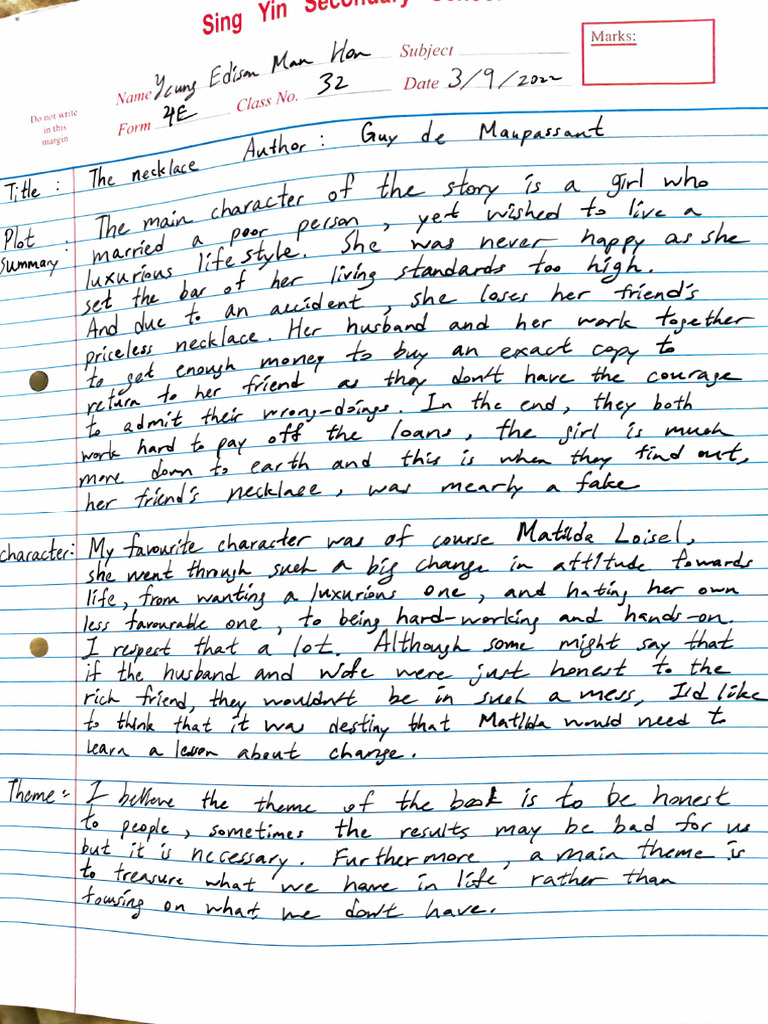 Sing Yin Secondary
Name Yeung Edison Man Hon Subject
Marks:
Form 4E Class No. 32 Date 3/9/2022
Do not write
in this
margin
Title : The necklace Author : Guy de Maupassant
Plot Summary : The main character of the story is a girl who
married a poor person, yet wished to live a
luxurious lifestyle. She was never happy as she
set the bar of her living standards too high.
And due to an accident, she loses her friend's
priceless necklace. Her husband and her work together
to get enough money to buy an exact copy to
return to her friend as they don't have the courage
to admit their wrong-doings. In the end, they both
work hard to pay off the loans, the girl is much
more down to earth and this is when they find out,
her friend's necklace, was mearly a fake
character: My favourite character was of course Matilda Loisel,
she went through such a big change in attitude towards
life, from wanting a luxurious one, and hating her own
less favourable one, to being hard-working and hands-on.
I respect that a lot. Although some might say that
if the husband and wife were just honest to the
rich friend, they wouldn't be in such a mess, I'd like
to think that it was destiny that Matilda would need to
learn a lesson about change.
Theme: I believe the theme of the book is to be honest
to people, sometimes the results may be bad for us
but it is necessary. Furthermore, a main theme is
to treasure what we have in life rather than
focusing on what we don't have.